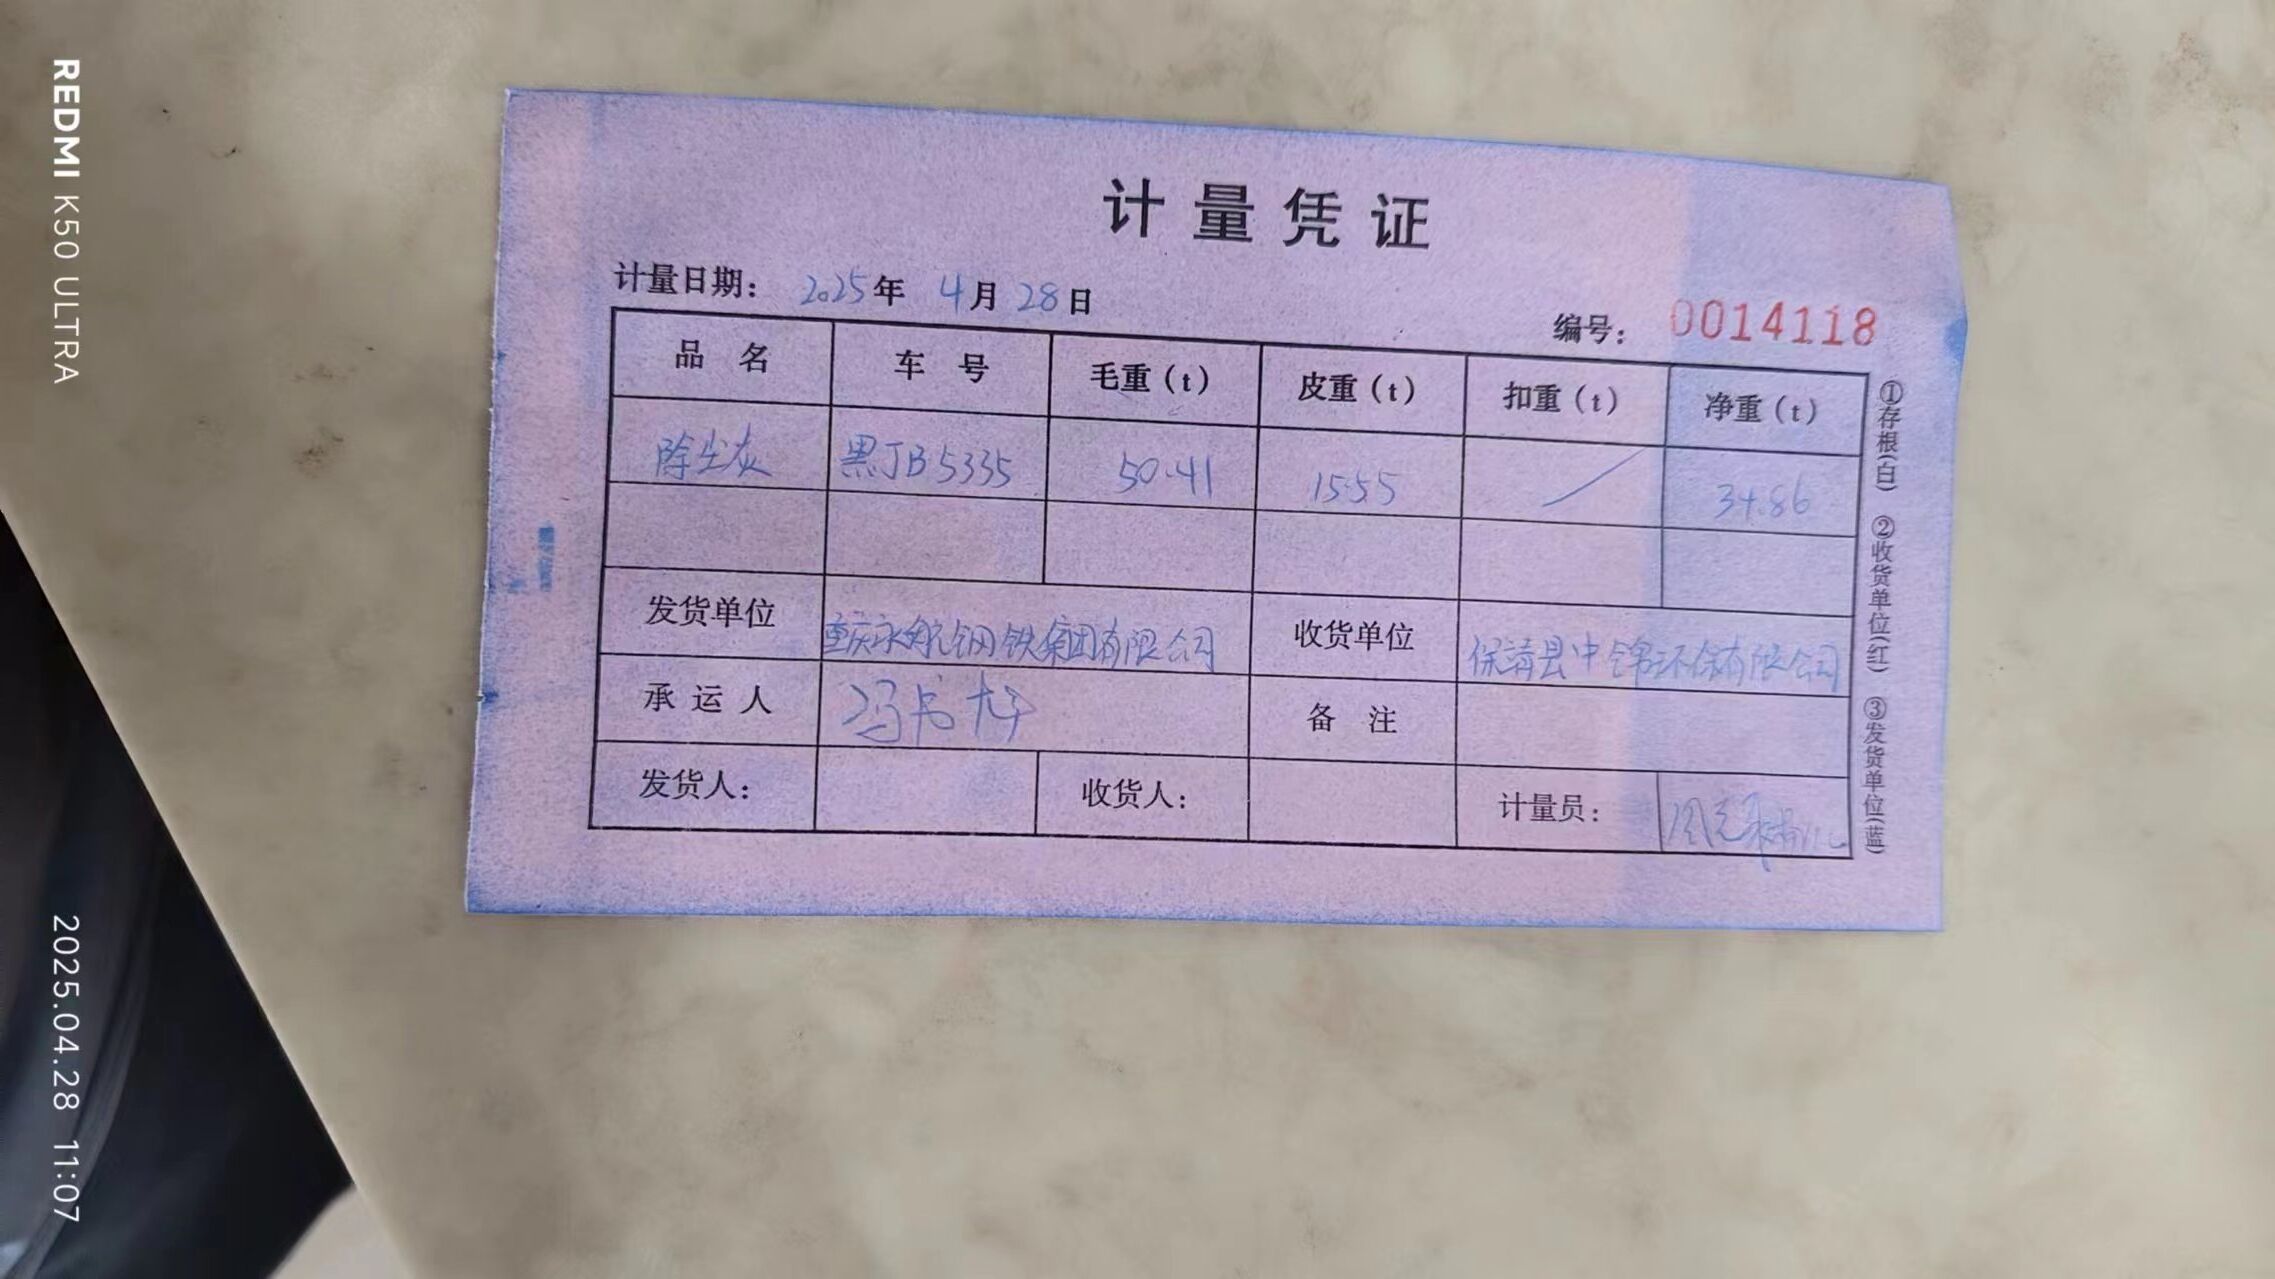 计量凭证
计量日期: 2025年 4月 28日
编号: 0014118
品 名 车 号 毛重(t) 皮重(t) 扣重(t) 净重(t)
除尘灰 黑JB5335 50.41 15.55 34.86
发货单位 重庆永航钢铁集团有限公司 收货单位 保靖县中锦环保有限公司
承运人 冯 备 注
发货人: 收货人: 计量员:
①存根(白) ②收货单位(红) ③发货单位(蓝)
REDMI K50 ULTRA
2025.04.28 11:07